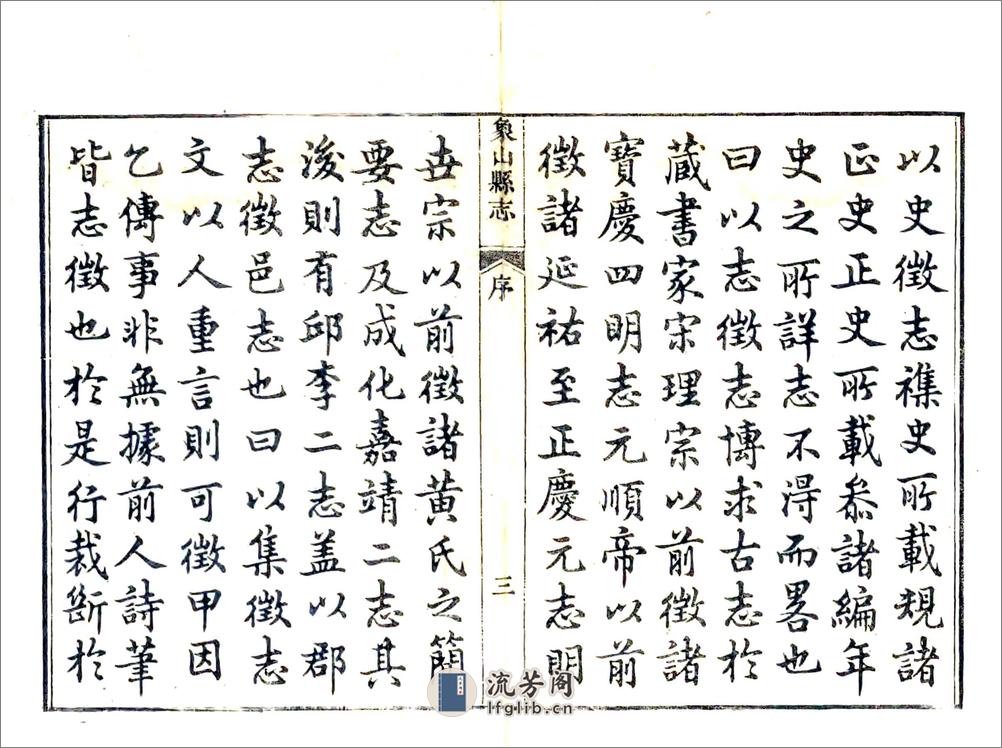 以史徵志襍史所載規諸
正史正史所載叅諸編年
史之所詳志不得而畧也
曰以志徵志博求古志於
藏書家宋理宗以前徵諸
寶慶四明志元順帝以前
徵諸延祐至正慶元志明
象山縣志
序
三
世宗以前徵諸黄氏之簡
要志及成化嘉靖二志其
後則有邱李二志盖以郡
志徵邑志也曰以集徵志
文以人重言則可徵甲因
乙傳事非無據前人詩筆
皆志徵也於是行裁斷於
流芳阁
lfglib.cn